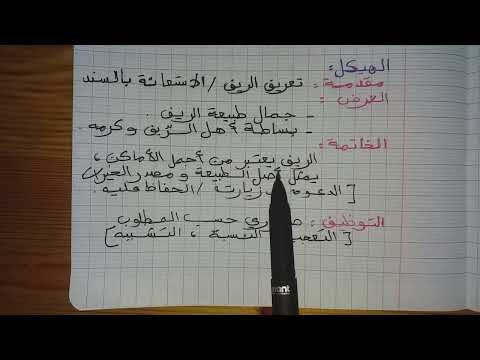 الهيكل:
مقدمة: تعريف الريف / الاستعانة بالسند
العرض:
- جمال طبيعة الريف.
- بساطة أهل الريف وكرمه.
الخاتمة:
الريف يعتبر من أجمل الأماكن،
يمثل أصل الطبيعة و مصدر الخيرات
[الدعوة زيارته / الحفاظ عليه.
التوظيف: حسب المطلوب
[التعجب، النسبة، التشبيه]